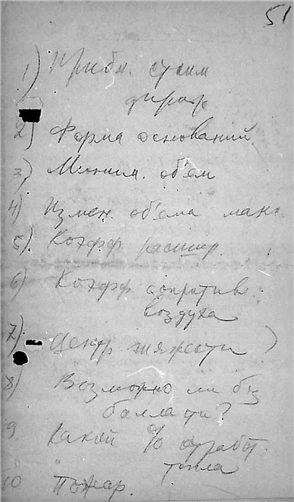 51
1) Прибл. стоим
2) Форма оснований
3) Миним. объем
4) Измен. объема макс.
5) Коэфф расшир.
6) Коэфф сопротив.
воздуха
7) Центр тяжести )
8) Возможно ли без
балласта?
9 Какой % отработ.
тепла
10 Пожар.